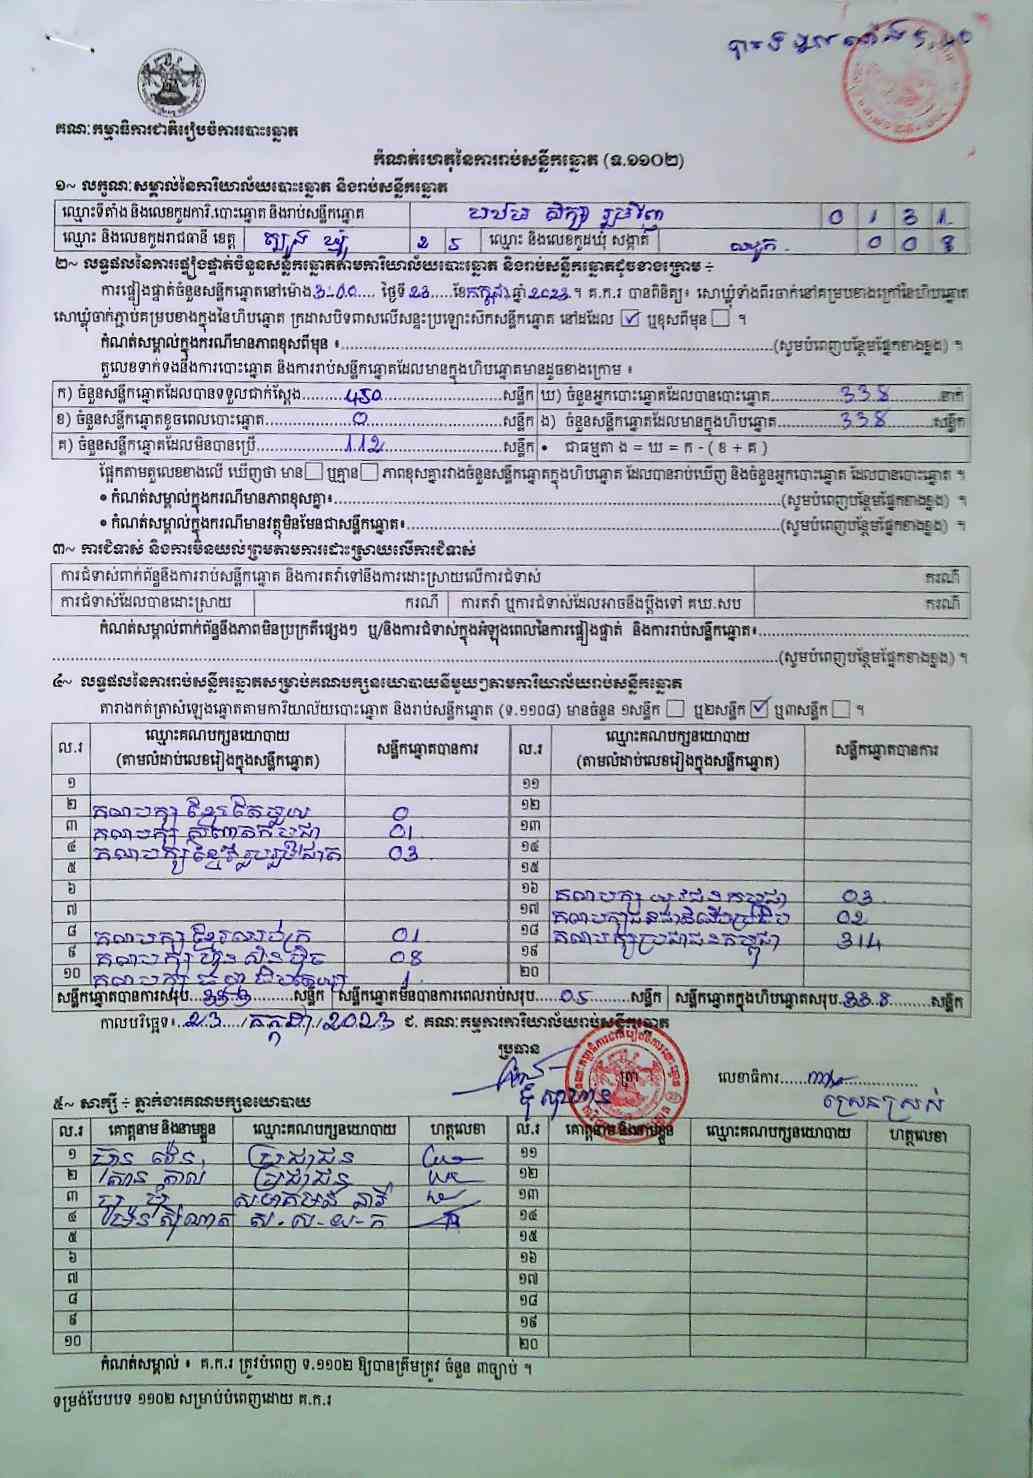 គណៈកម្មាធិការជាតិរៀបចំការបោះឆ្នោត
កំណត់ហេតុនៃការរាប់សន្លឹកឆ្នោត (ទ.១១០២)
១~ លក្ខណៈសម្គាល់នៃការិយាល័យបោះឆ្នោត និងរាប់សន្លឹកឆ្នោត
ឈ្មោះទីតាំង និងលេខកូដការិ.បោះឆ្នោត និងរាប់សន្លឹកឆ្នោត 0 1 3 1
ឈ្មោះ និងលេខកូដរាជធានី ខេត្ត ត្បូងឃ្មុំ 2 5 ឈ្មោះ និងលេខកូដឃុំ សង្កាត់ 0 0 8
២~ លទ្ធផលនៃការផ្ទៀងផ្ទាត់ចំនួនសន្លឹកឆ្នោតតាមការិយាល័យបោះឆ្នោត និងរាប់សន្លឹកឆ្នោតដូចខាងក្រោម ÷
ការផ្ទៀងផ្ទាត់ចំនួនសន្លឹកឆ្នោតនៅម៉ោង 3:00 ថ្ងៃទី 23 ខែ កក្កដា ឆ្នាំ 2023 ។ គ.ក.រ បានពិនិត្យ៖ សោឃ្លុំទាំងពីរចាក់នៅគម្របខាងក្រៅនៃហិបឆ្នោត
សោឃ្លុំចាក់ភ្ជាប់គម្របខាងក្នុងនៃហិបឆ្នោត ក្រដាសបិទពាសលើសន្ទះប្រឡោះសឹកសន្លឹកឆ្នោត នៅដដែល ☑ ឬខុសពីមុន ☐ ។
កំណត់សម្គាល់ក្នុងករណីមានភាពខុសពីមុន ៖ (សូមបំពេញបន្ថែមផ្នែកខាងខ្នង) ។
តួលេខទាក់ទងនឹងការបោះឆ្នោត និងការរាប់សន្លឹកឆ្នោតដែលមានក្នុងហិបឆ្នោតមានដូចខាងក្រោម ៖
ក) ចំនួនសន្លឹកឆ្នោតដែលបានទទួលជាក់ស្តែង 450 សន្លឹក ឃ) ចំនួនអ្នកបោះឆ្នោតដែលបានបោះឆ្នោត 338 នាក់
ខ) ចំនួនសន្លឹកឆ្នោតខូចពេលបោះឆ្នោត 0 សន្លឹក ង) ចំនួនសន្លឹកឆ្នោតដែលមានក្នុងហិបឆ្នោត 338 សន្លឹក
គ) ចំនួនសន្លឹកឆ្នោតដែលមិនបានប្រើ 112 សន្លឹក • ជាធម្មតា ង = ឃ = ក - ( ខ + គ )
ផ្អែកតាមតួលេខខាងលើ ឃើញថា មាន ☐ ឬគ្មាន ☐ ភាពខុសគ្នារវាងចំនួនសន្លឹកឆ្នោតក្នុងហិបឆ្នោត ដែលបានរាប់ឃើញ និងចំនួនអ្នកបោះឆ្នោត ដែលបានបោះឆ្នោត ។
• កំណត់សម្គាល់ក្នុងករណីមានភាពខុសគ្នា៖ (សូមបំពេញបន្ថែមផ្នែកខាងខ្នង) ។
• កំណត់សម្គាល់ក្នុងករណីមានវត្ថុមិនមែនជាសន្លឹកឆ្នោត៖ (សូមបំពេញបន្ថែមផ្នែកខាងខ្នង) ។
៣~ ការជំទាស់ និងការមិនយល់ព្រមតាមការដោះស្រាយលើការជំទាស់
ការជំទាស់ពាក់ព័ន្ធនឹងការរាប់សន្លឹកឆ្នោត និងការតវ៉ាទៅនឹងការដោះស្រាយលើការជំទាស់ ករណី
ការជំទាស់ដែលបានដោះស្រាយ ករណី ការតវ៉ា ឬការជំទាស់ដែលអាចនឹងប្តឹងទៅ គឃ.សប ករណី
កំណត់សម្គាល់ពាក់ព័ន្ធនឹងភាពមិនប្រក្រតីផ្សេងៗ ឬ/និងការជំទាស់ក្នុងអំឡុងពេលនៃការផ្ទៀងផ្ទាត់ និងការរាប់សន្លឹកឆ្នោត៖
(សូមបំពេញបន្ថែមផ្នែកខាងខ្នង) ។
៤~ លទ្ធផលនៃការរាប់សន្លឹកឆ្នោតសម្រាប់គណបក្សនយោបាយនីមួយៗតាមការិយាល័យរាប់សន្លឹកឆ្នោត
តារាងកត់ត្រាសំឡេងឆ្នោតតាមការិយាល័យបោះឆ្នោត និងរាប់សន្លឹកឆ្នោត (ទ.១១០៨) មានចំនួន ១សន្លឹក ☐ ឬ២សន្លឹក ☑ ឬ៣សន្លឹក ☐ ។
ល.រ ឈ្មោះគណបក្សនយោបាយ (តាមលំដាប់លេខរៀងក្នុងសន្លឹកឆ្នោត) សន្លឹកឆ្នោតបានការ ល.រ ឈ្មោះគណបក្សនយោបាយ (តាមលំដាប់លេខរៀងក្នុងសន្លឹកឆ្នោត) សន្លឹកឆ្នោតបានការ
១ ១១
២ គណបក្ស ខ្មែរតែមួយ 0 ១២
៣ គណបក្ស 01 ១៣
៤ គណបក្ស ខ្មែររួបរួមជាតិ 03 ១៤
៥ ១៥
៦ ១៦ គណបក្ស យុវជនកម្ពុជា 03
៧ ១៧ គណបក្ស 02
៨ គណបក្ស ខ្មែរឈប់ក្រ 01 ១៨ គណបក្សប្រជាជនកម្ពុជា 314
៩ គណបក្ស ហ៊្វុនស៊ិនប៉ិច 08 ១៩
១០ គណបក្ស 1 ២០
សន្លឹកឆ្នោតបានការសរុប 333 សន្លឹក សន្លឹកឆ្នោតមិនបានការពេលរាប់សរុប 05 សន្លឹក សន្លឹកឆ្នោតក្នុងហិបឆ្នោតសរុប 338 សន្លឹក
កាលបរិច្ឆេទ៖ 23 / កក្កដា / 2023 ជ. គណៈកម្មការការិយាល័យរាប់សន្លឹកឆ្នោត
ប្រធាន
ត្រា លេខាធិការ
ស្រេនស្រស់
៥~ សាក្សី ÷ ភ្នាក់ងារគណបក្សនយោបាយ
ល.រ គោត្តនាម និងនាមខ្លួន ឈ្មោះគណបក្សនយោបាយ ហត្ថលេខា ល.រ គោត្តនាម និងនាមខ្លួន ឈ្មោះគណបក្សនយោបាយ ហត្ថលេខា
១ ប្រជាជន ១១
២ ប្រជាជន ១២
៣ ១៣
៤ ស.ស-យ-ក ១៤
៥ ១៥
៦ ១៦
៧ ១៧
៨ ១៨
៩ ១៩
១០ ២០
កំណត់សម្គាល់ ៖ គ.ក.រ ត្រូវបំពេញ ទ.១១០២ ឱ្យបានត្រឹមត្រូវ ចំនួន ៣ច្បាប់ ។
ទម្រង់បែបបទ ១១០២ សម្រាប់បំពេញដោយ គ.ក.រ